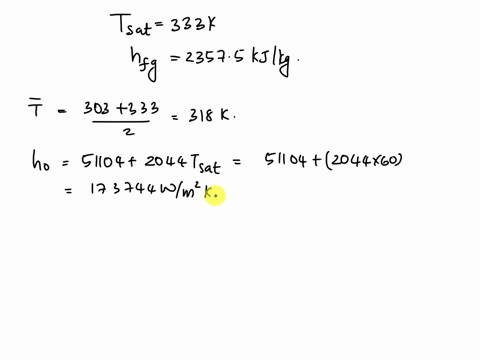 Tsat = 333K
hfg = 2357.5 KJ/kg.
T̄ = (303+333)/2 = 318 K.
ho = 51104 + 2044 Tsat = 51104 + (2044×60)
= 173744 W/m² K.